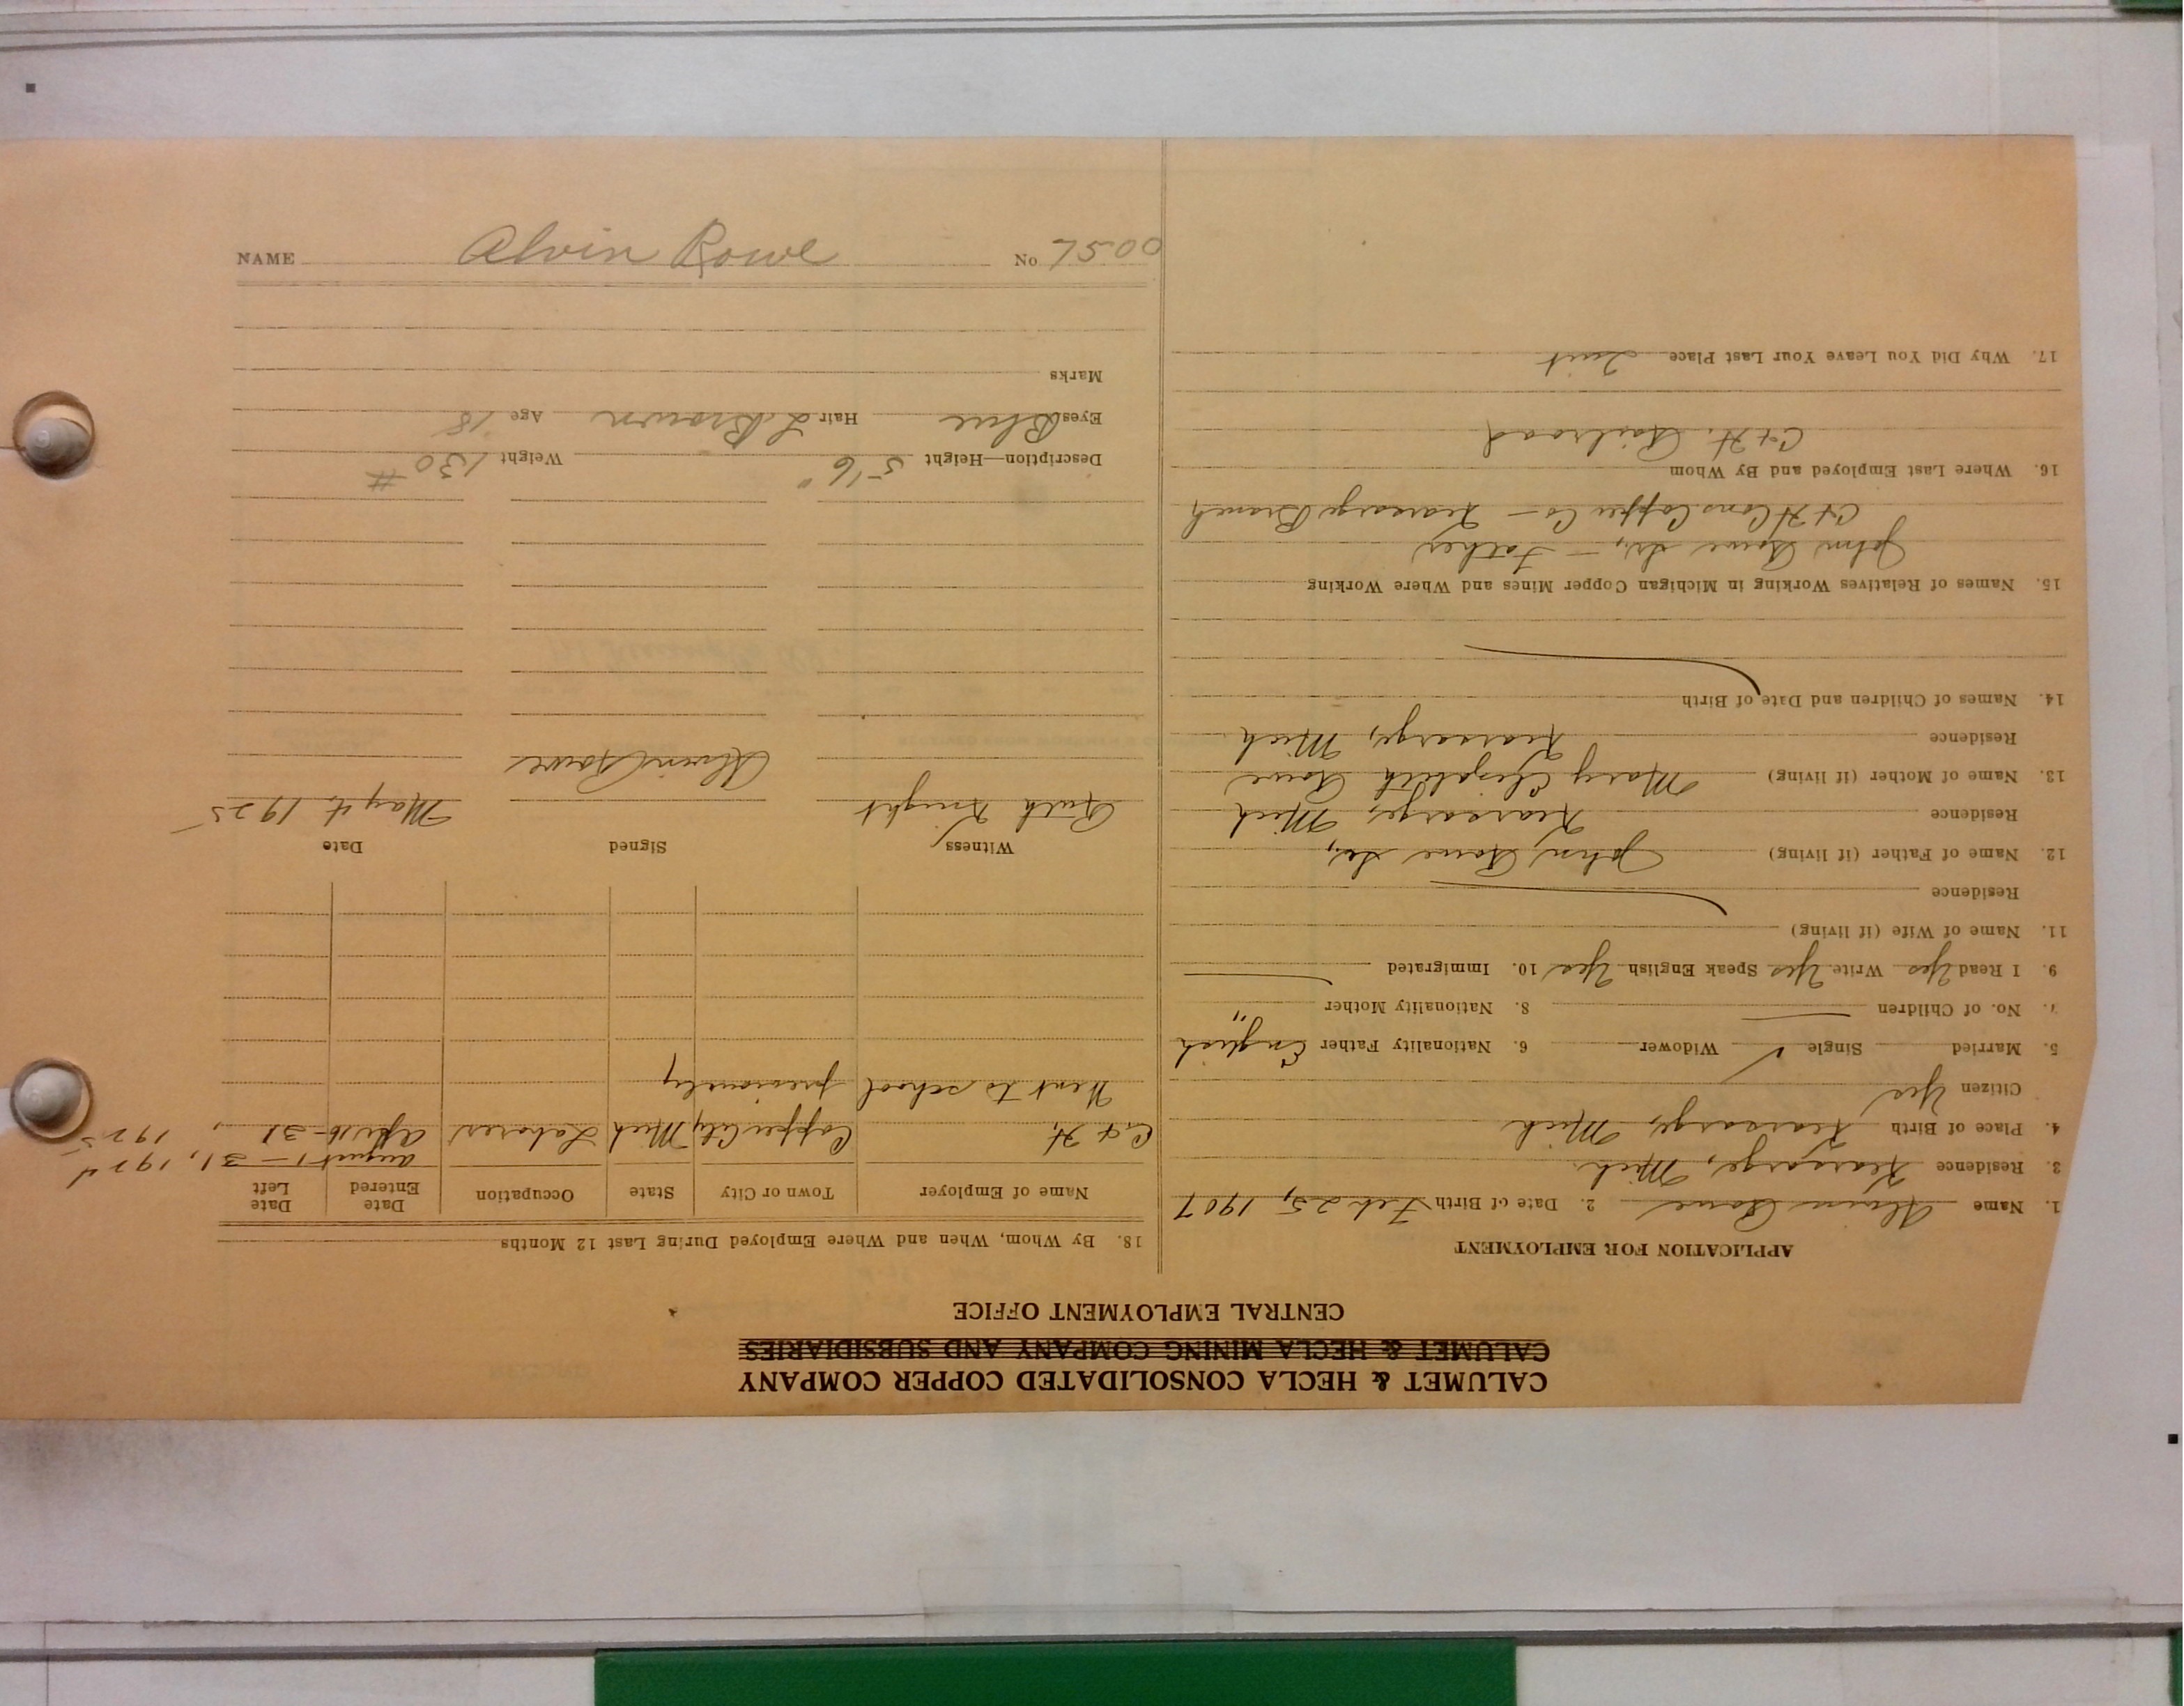 CALUMET & HECLA CONSOLIDATED COPPER COMPANY
CALUMET & HECLA MINING COMPANY AND SUBSIDIARIES
CENTRAL EMPLOYMENT OFFICE
APPLICATION FOR EMPLOYMENT
1. Name Alvin Rowe 2. Date of Birth Feb 25, 1907
3. Residence Kearsarge, Mich.
4. Place of Birth Kearsarge, Mich
Citizen Yes
5. Married Single ✓ Widower 6. Nationality Father English
7. No. of Children 8. Nationality Mother "
9. I Read Yes Write Yes Speak English Yes 10. Immigrated
11. Name of Wife (if living)
Residence
12. Name of Father (if living) John Rowe Sr.,
Residence Kearsarge, Mich
13. Name of Mother (if living) Mary Elizabeth Rowe
Residence Kearsarge, Mich
14. Names of Children and Date of Birth
15. Names of Relatives Working in Michigan Copper Mines and Where Working
John Rowe Sr., - Father
C & H Cons Copper Co - Kearsarge Branch
16. Where Last Employed and By Whom
C & H. Railroad
17. Why Did You Leave Your Last Place Quit
18. By Whom, When and Where Employed During Last 12 Months
Name of Employer Town or City State Occupation Date Entered Date Left
August 1 - 31, 1924
C & H. Copper City Mich Laborer Apr 16-31, 1925
Went to school previously
Witness Signed Date
Ruth Knight May 4, 1925
Alvin Rowe
Description—Height 5'6" Weight 130 #
Eyes Blue Hair L Brown Age 18
Marks
NAME Alvin Rowe No 7500